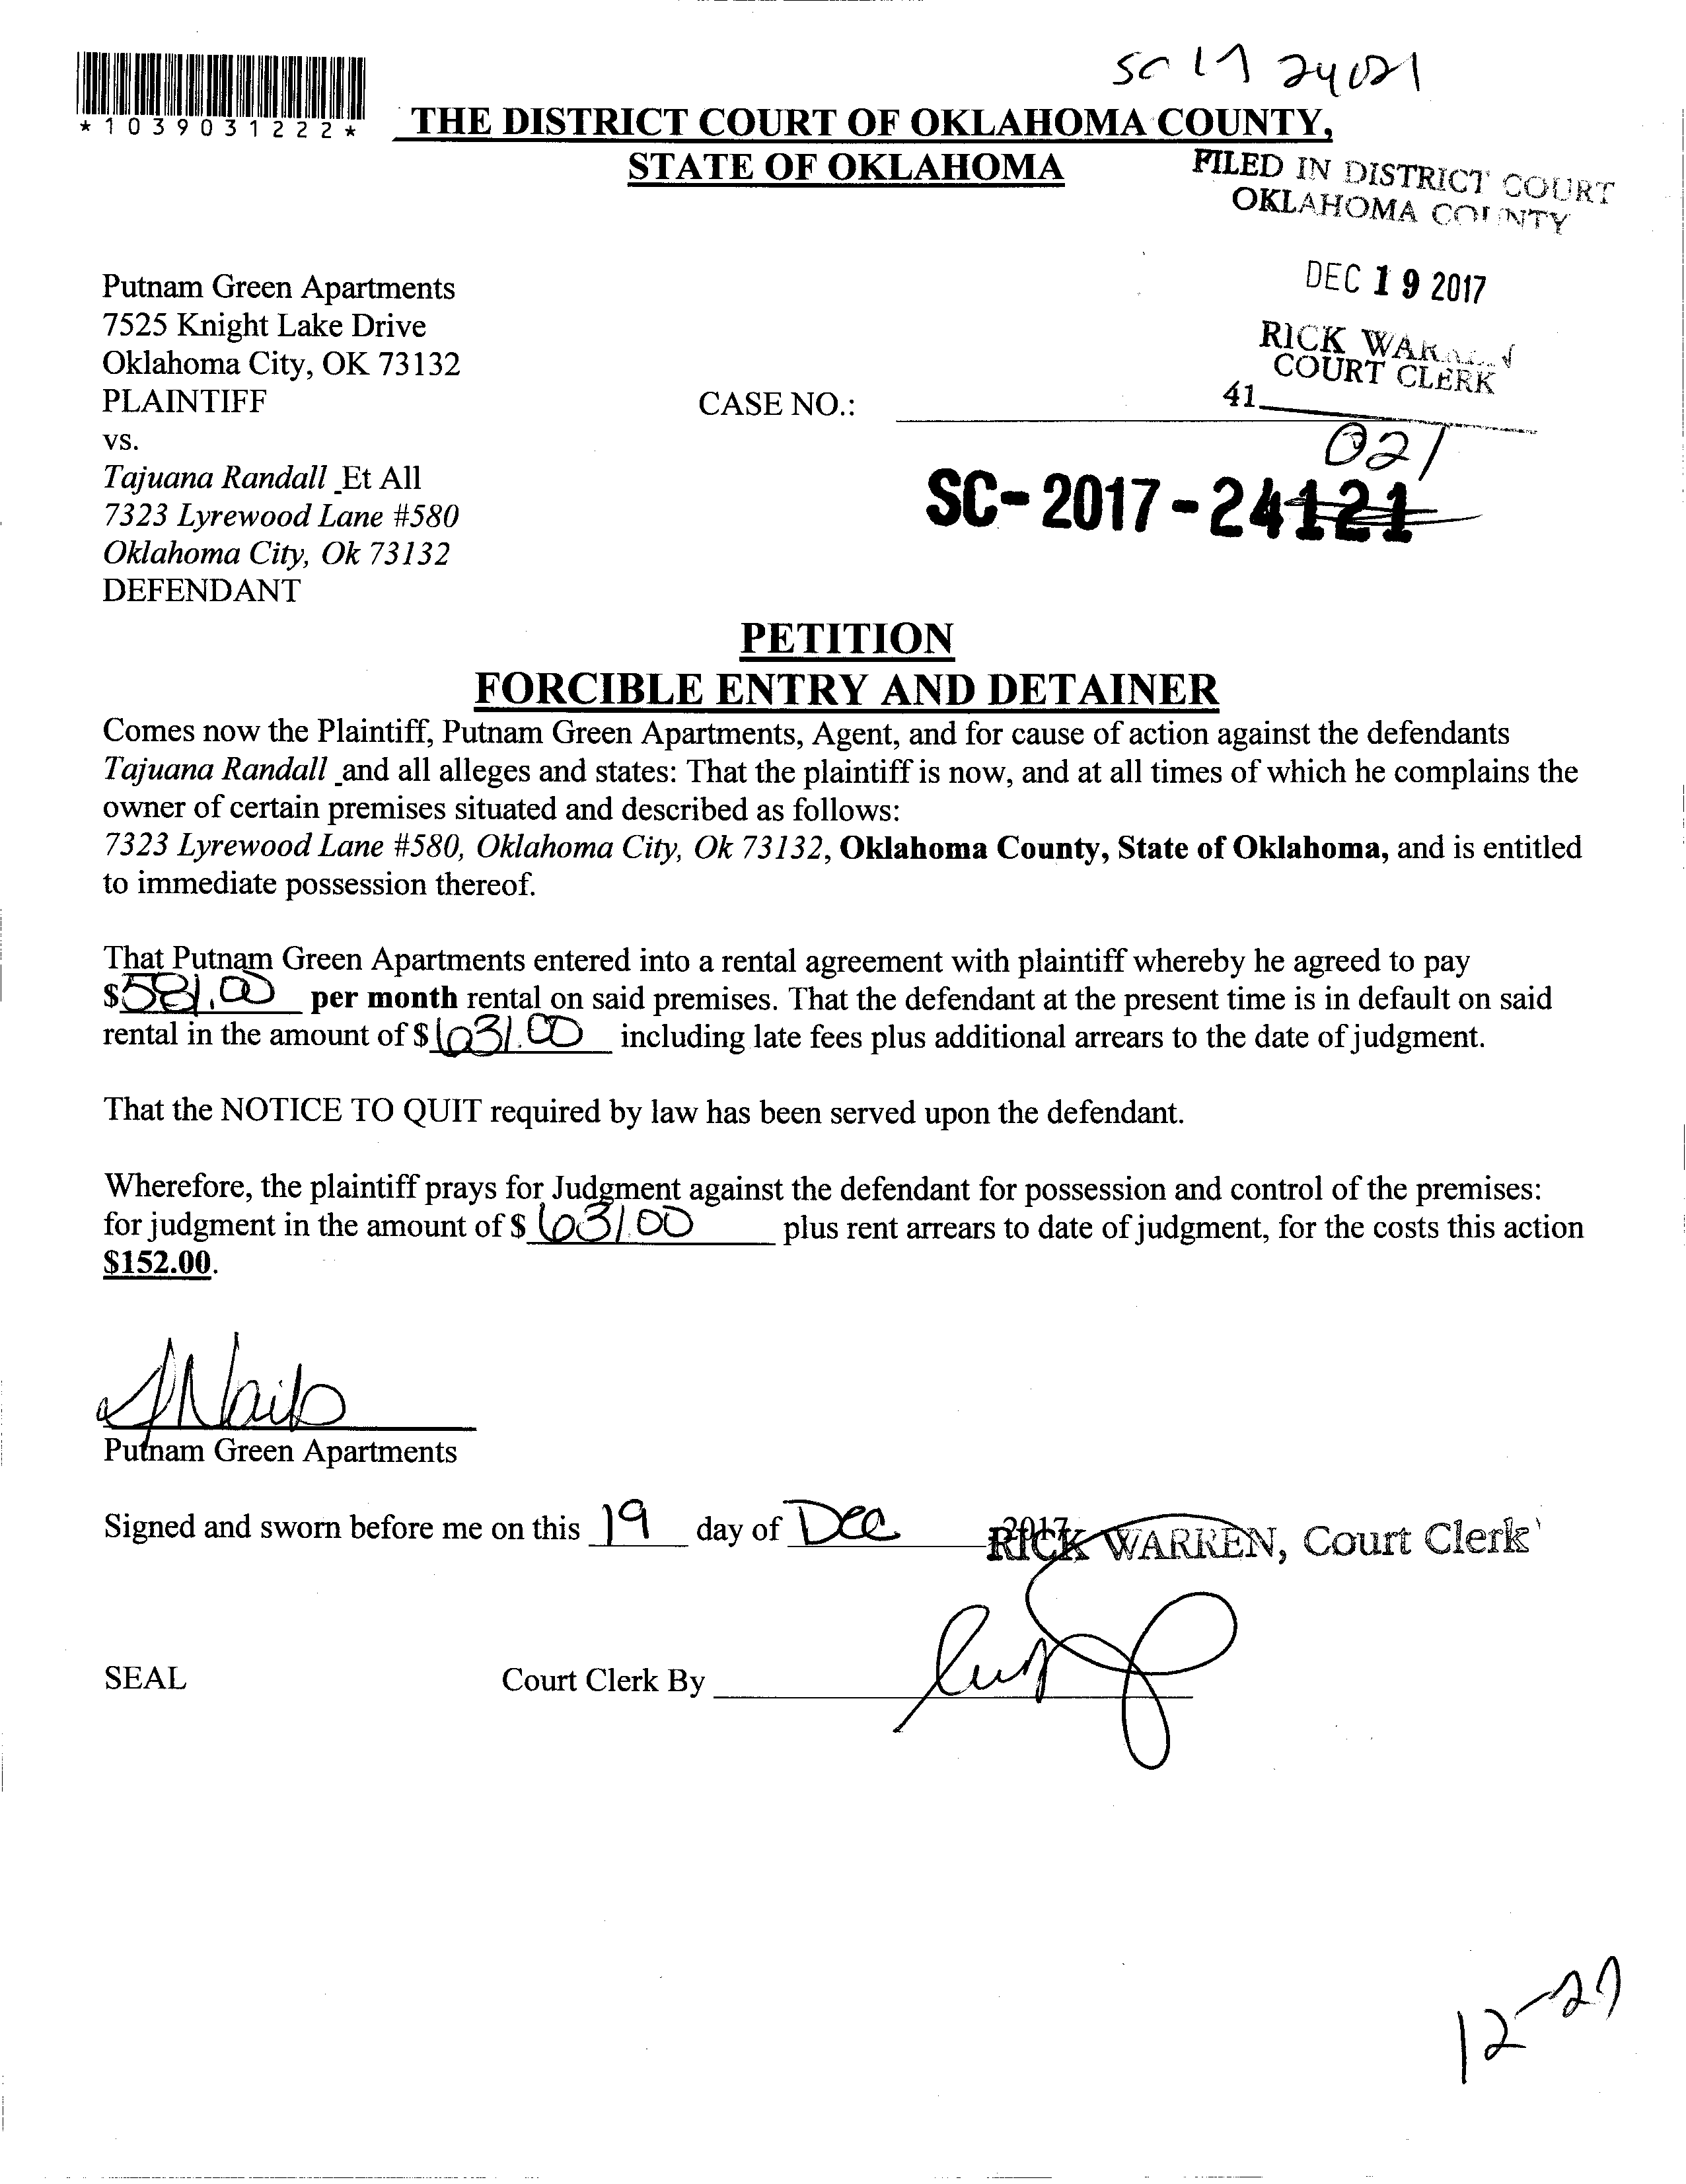 SC 17 24021
*1039031222*
THE DISTRICT COURT OF OKLAHOMA COUNTY,
STATE OF OKLAHOMA
FILED IN DISTRICT COURT
OKLAHOMA COUNTY
DEC 19 2017
RICK WARREN
COURT CLERK
41
Putnam Green Apartments
7525 Knight Lake Drive
Oklahoma City, OK 73132
PLAINTIFF
CASE NO.:
vs.
Tajuana Randall Et All
7323 Lyrewood Lane #580
Oklahoma City, Ok 73132
DEFENDANT
021
SC-2017-24121
PETITION
FORCIBLE ENTRY AND DETAINER
Comes now the Plaintiff, Putnam Green Apartments, Agent, and for cause of action against the defendants
Tajuana Randall and all alleges and states: That the plaintiff is now, and at all times of which he complains the
owner of certain premises situated and described as follows:
7323 Lyrewood Lane #580, Oklahoma City, Ok 73132, Oklahoma County, State of Oklahoma, and is entitled
to immediate possession thereof.
That Putnam Green Apartments entered into a rental agreement with plaintiff whereby he agreed to pay
$581.00 per month rental on said premises. That the defendant at the present time is in default on said
rental in the amount of $631.00 including late fees plus additional arrears to the date of judgment.
That the NOTICE TO QUIT required by law has been served upon the defendant.
Wherefore, the plaintiff prays for Judgment against the defendant for possession and control of the premises:
for judgment in the amount of $631.00 plus rent arrears to date of judgment, for the costs this action
$152.00.
Putnam Green Apartments
Signed and sworn before me on this 19 day of Dec 2017
RICK WARREN, Court Clerk
SEAL
Court Clerk By
12-27